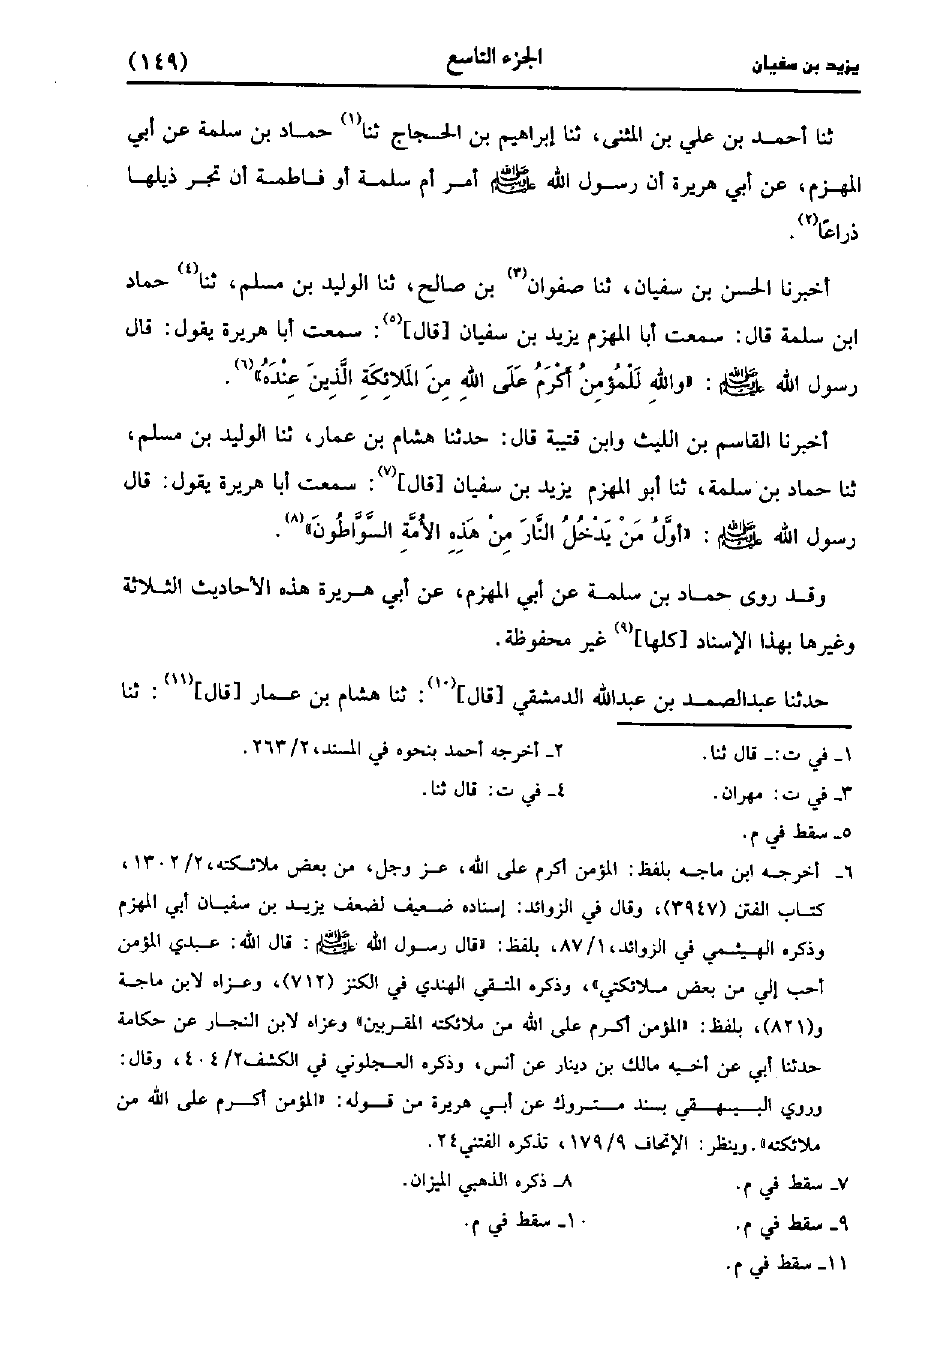 يزيد بن سفيان
الجزء التاسع
(١٤٩)
ثنا أحمد بن علي بن المثنى، ثنا إبراهيم بن الحجاج ثنا(١) حماد بن سلمة عن أبي
المهزم، عن أبي هريرة أن رسول الله ﷺ أمر أم سلمة أو فاطمة أن تجر ذيلها
ذراعًا(٢).
أخبرنا الحسن بن سفيان، ثنا صفوان(٣) بن صالح، ثنا الوليد بن مسلم، ثنا(٤) حماد
ابن سلمة قال: سمعت أبا المهزم يزيد بن سفيان [قال](٥): سمعت أبا هريرة يقول: قال
رسول الله ﷺ : «والله لَلْمُؤمِنُ أَكْرَمُ عَلَى اللهِ مِنَ الْمَلائِكَةِ الَّذِينَ عِنْدَهُ»(٦).
أخبرنا القاسم بن الليث وابن قتيبة قال: حدثنا هشام بن عمار، ثنا الوليد بن مسلم،
ثنا حماد بن سلمة، ثنا أبو المهزم يزيد بن سفيان [قال](٧): سمعت أبا هريرة يقول: قال
رسول الله ﷺ : «أوَّلُ مَنْ يَدْخُلُ النَّارَ مِنْ هَذِهِ الأُمَّةِ السَّوَّاطُونَ»(٨).
وقد روى حماد بن سلمة عن أبي المهزم، عن أبي هريرة هذه الأحاديث الثلاثة
وغيرها بهذا الإسناد [كلها](٩) غير محفوظة.
حدثنا عبدالصمد بن عبدالله الدمشقي [قال](١٠): ثنا هشام بن عمار [قال](١١): ثنا
١ـ في ت:ـ قال ثنا.
٢ـ أخرجه أحمد بنحوه في المسند، ٢٦٣/٢.
٣ـ في ت: مهران.
٤ـ في ت: قال ثنا.
٥ـ سقط في م.
٦ـ أخرجه ابن ماجه بلفظ: المؤمن أكرم على الله، عز وجل، من بعض ملائكته، ١٣٠٢/٢،
كتاب الفتن (٣٩٤٧)، وقال في الزوائد: إسناده ضعيف لضعف يزيد بن سفيان أبي المهزم
وذكره الهيثمي في الزوائد، ٨٧/١، بلفظ: «قال رسول الله ﷺ : قال الله: عبدي المؤمن
أحب إلي من بعض ملائكتي»، وذكره المتقي الهندي في الكنز (٧١٢)، وعزاه لابن ماجة
و(٨٢١)، بلفظ: «المؤمن أكرم على الله من ملائكته المقربين» وعزاه لابن النجار عن حكامة
حدثنا أبي عن أخيه مالك بن دينار عن أنس، وذكره العجلوني في الكشف٤٠٤/٢، وقال:
وروي البيهقي بسند متروك عن أبي هريرة من قوله: «المؤمن أكرم على الله من
ملائكته». وينظر: الإتحاف ١٧٩/٩، تذكره الفتني٢٤.
٧ـ سقط في م.
٨ـ ذكره الذهبي الميزان.
٩ـ سقط في م.
١٠ـ سقط في م.
١١ـ سقط في م.